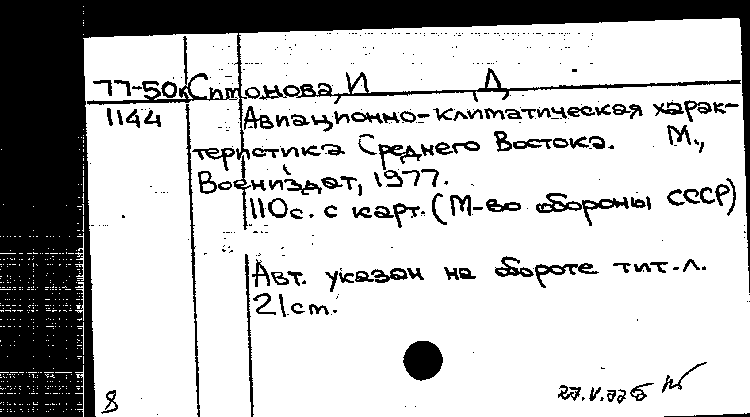 77-50к Ситонова, И Д
1144 Авиационно-климатическая харак-
теристика Среднего Востока. М.,
Воениздат, 1977.
110с. с карт. (М-во обороны СССР)
Авт. указан на обороте тит.л.
21ст.
8 27.V.77